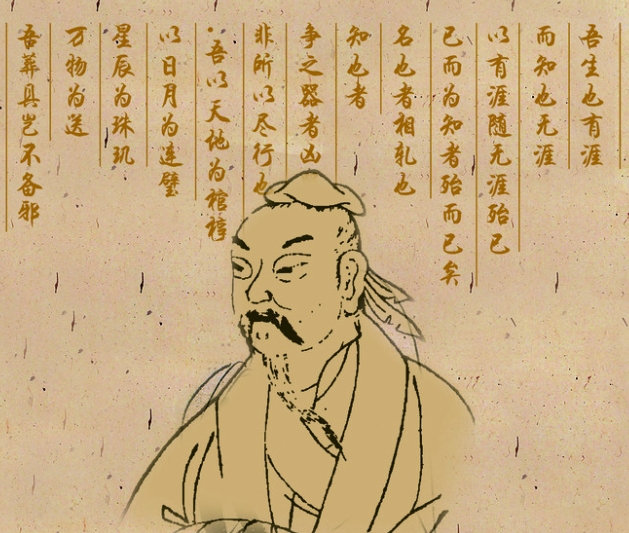 吾生也有涯
而知也无涯
以有涯随无涯殆已
已而为知者殆而已矣
名也者相轧也
知也者
争之器者凶
非所以尽行也
·吾以天地为棺椁
以日月为连璧
星辰为珠玑
万物为送
吾葬具岂不备邪